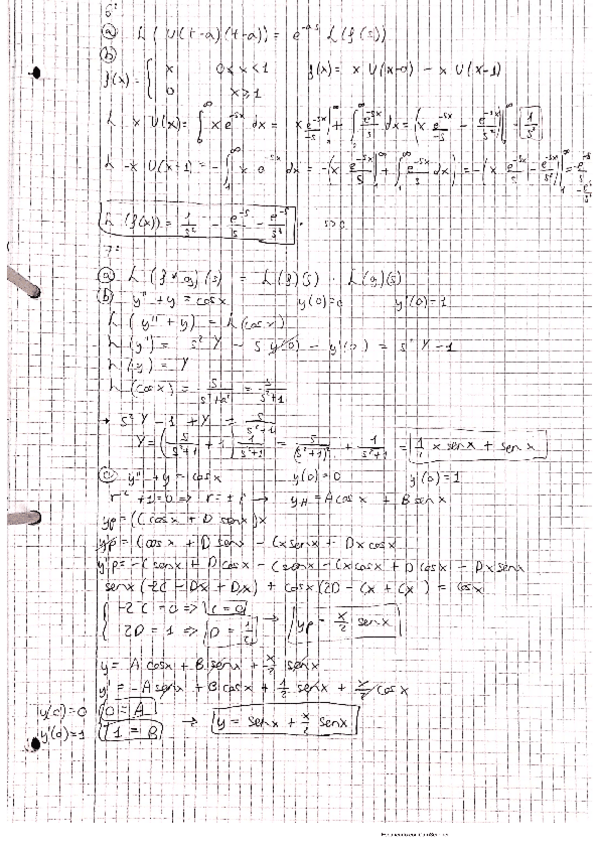 6:
(a) L(U(t-a)f(t-a)) = e^{-as} L(f(s))
(b)
f(x) = { x 0<x<1 f(x) = x U(x-0) - x U(x-1)
0 x≥1
L x U(x) = ∫_0^∞ x e^{-sx} dx = x e^{-sx}/-s |_0^∞ + ∫_0^∞ e^{-sx}/s dx = (x e^{-sx}/-s - e^{-sx}/s²)|_0^∞ = 1/s²
L -x U(x-1) = -∫_1^∞ x e^{-sx} dx = -(x e^{-sx}/s |_1^∞ + ∫_1^∞ e^{-sx}/s dx) = -(x e^{-sx}/s - e^{-sx}/s²)|_1^∞ = -e^{-s}/s - e^{-s}/s²
L(f(x)) = 1/s² - e^{-s}/s - e^{-s}/s² . s>0
7:
(a) L(f*g)(s) = L(f)(s) · L(g)(s)
(b) y'' + y = cosx y(0)=0 y'(0)=1
L(y'' + y) = L(cosx)
L(y'') = s² Y - s y(0) - y'(0) = s² Y - 1
L(y) = Y
L(cosx) = s/(s²+a²) = s/(s²+1)
→ s² Y - 1 + Y = s/(s²+1)
Y = (s/(s²+1) + 1) 1/(s²+1) = s/(s²+1)² + 1/(s²+1) = 1/2 x senx + senx
(c) y'' + y = cosx y(0)=0 y'(0)=1
r² + 1 = 0 => r = ± i → y_H = A cosx + B senx
yp = (C cosx + D senx)x
y'p = C cosx + D senx - Cx senx + Dx cosx
y''p = -C senx + D cosx - C senx - Cx cosx + D cosx - Dx senx
senx(-2C - Dx + Dx) + cosx(2D - Cx + Cx) = cosx
{ -2C = 0 => C = 0
2D = 1 => D = 1/2 → yp = x/2 senx
y = A cosx + B senx + x/2 senx
y' = -A senx + B cosx + 1/2 senx + x/2 cosx
y(0)=0 0 = A
y'(0)=1 1 = B → y = senx + x/2 senx